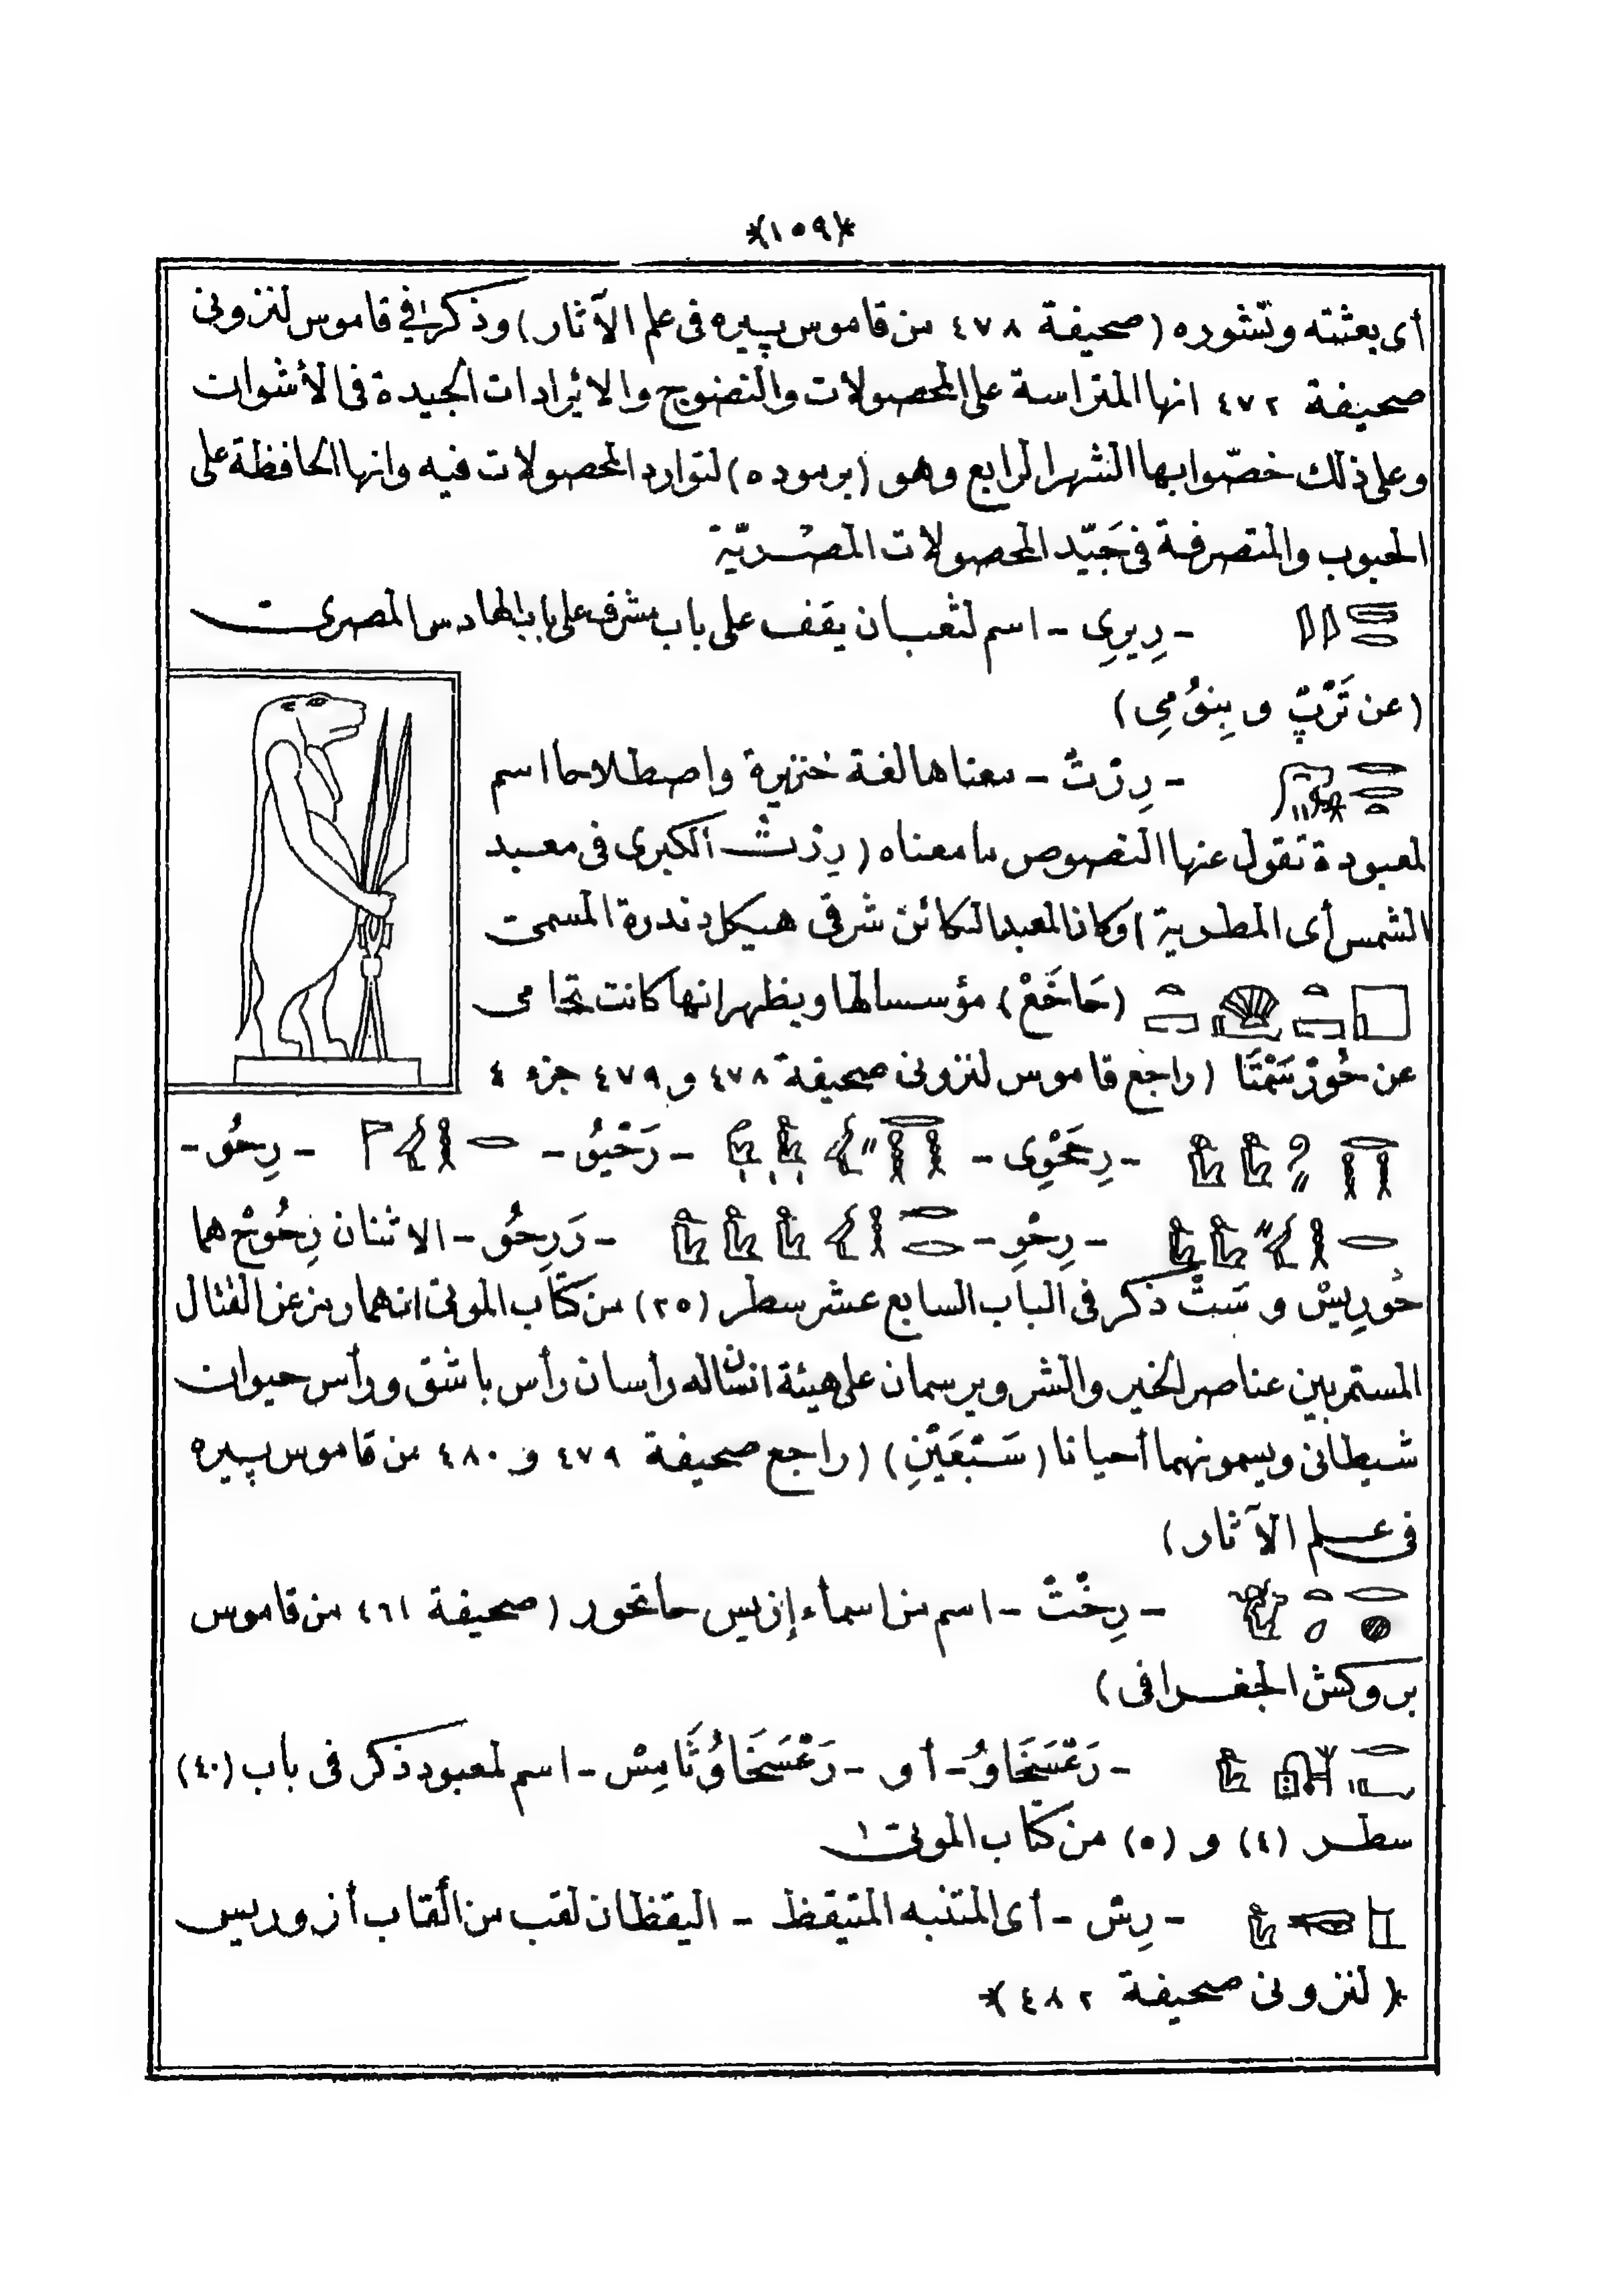 *(١٥٩)*
أى بعثته ونشوره (صحيفة ٤٧٨ من قاموس پييره فى علم الآثار) وذكر فى قاموس لنزونى
صحيفة ٤٧٢ انها المتراسة على المحصولات والنضوج والايرادات الجيدة فى الأشوات
وعلى ذلك خصّوا بها الشهر الرابع وهو (برموده) لتوارد المحصولات فيه وانها الحافظة على
الحبوب والمتصرفة فى جَيّد المحصولات المصريّة
- رِيرِى - اسم لثعبان يقف على باب مشرف على باب السادس المصرى
(عن تَرْبْ و بِنُومِى)
- رِرْتْ - معناها لغة خنزيرة واصطلاحا اسم
لمعبودة تقول عنها النصوص ما معناه (رِرْتْ الكبرى فى معبد
الشمس أى المطرية) وكان المعبد الكائن شرقى هيكل دندرة المسمى
(حَاخَعْ) مؤسسا لها ويظهر انها كانت تحامى
عن حُورْسَمْتَا (راجع قاموس لنزونى صحيفة ٤٧٨ و ٤٧٩ جزء ٤
- رِحَحْوِى - - رَحْيُو - - رِحُو -
- رِحْوِ - - رَرِحُو - الاثنان رِحُوحْ هما
حُورِيسْ و سَتْ ذكر فى الباب السابع عشر سطر (٢٥) من كتاب الموتى انهما رمز عن القتال
المستمر بين عناصر الخير والشر ويرسمان على هيئة انسان له رأسان رأس باشق ورأس حيوان
شيطانى ويسمونهما أحيانا (سَبْعَيْنِ) (راجع صحيفة ٤٧٩ و ٤٨٠ من قاموس پييره
فى علم الآثار)
- رِخْتْ - اسم من اسماء إزيس حاتحور (صحيفة ٤٦١ من قاموس
بروكش الجغرافى)
- رَعْسَخَاوُ - أو - رَعْسَخَاوُثَامِسْ - اسم لمعبود ذكر فى باب (٤٠)
سطر (٤) و (٥) من كتاب الموتى
- رِسْ - أى المتنبه المتيقظ - اليقظان لقب من ألقاب أزوريس
*(لنزونى صحيفة ٤٨٢)*